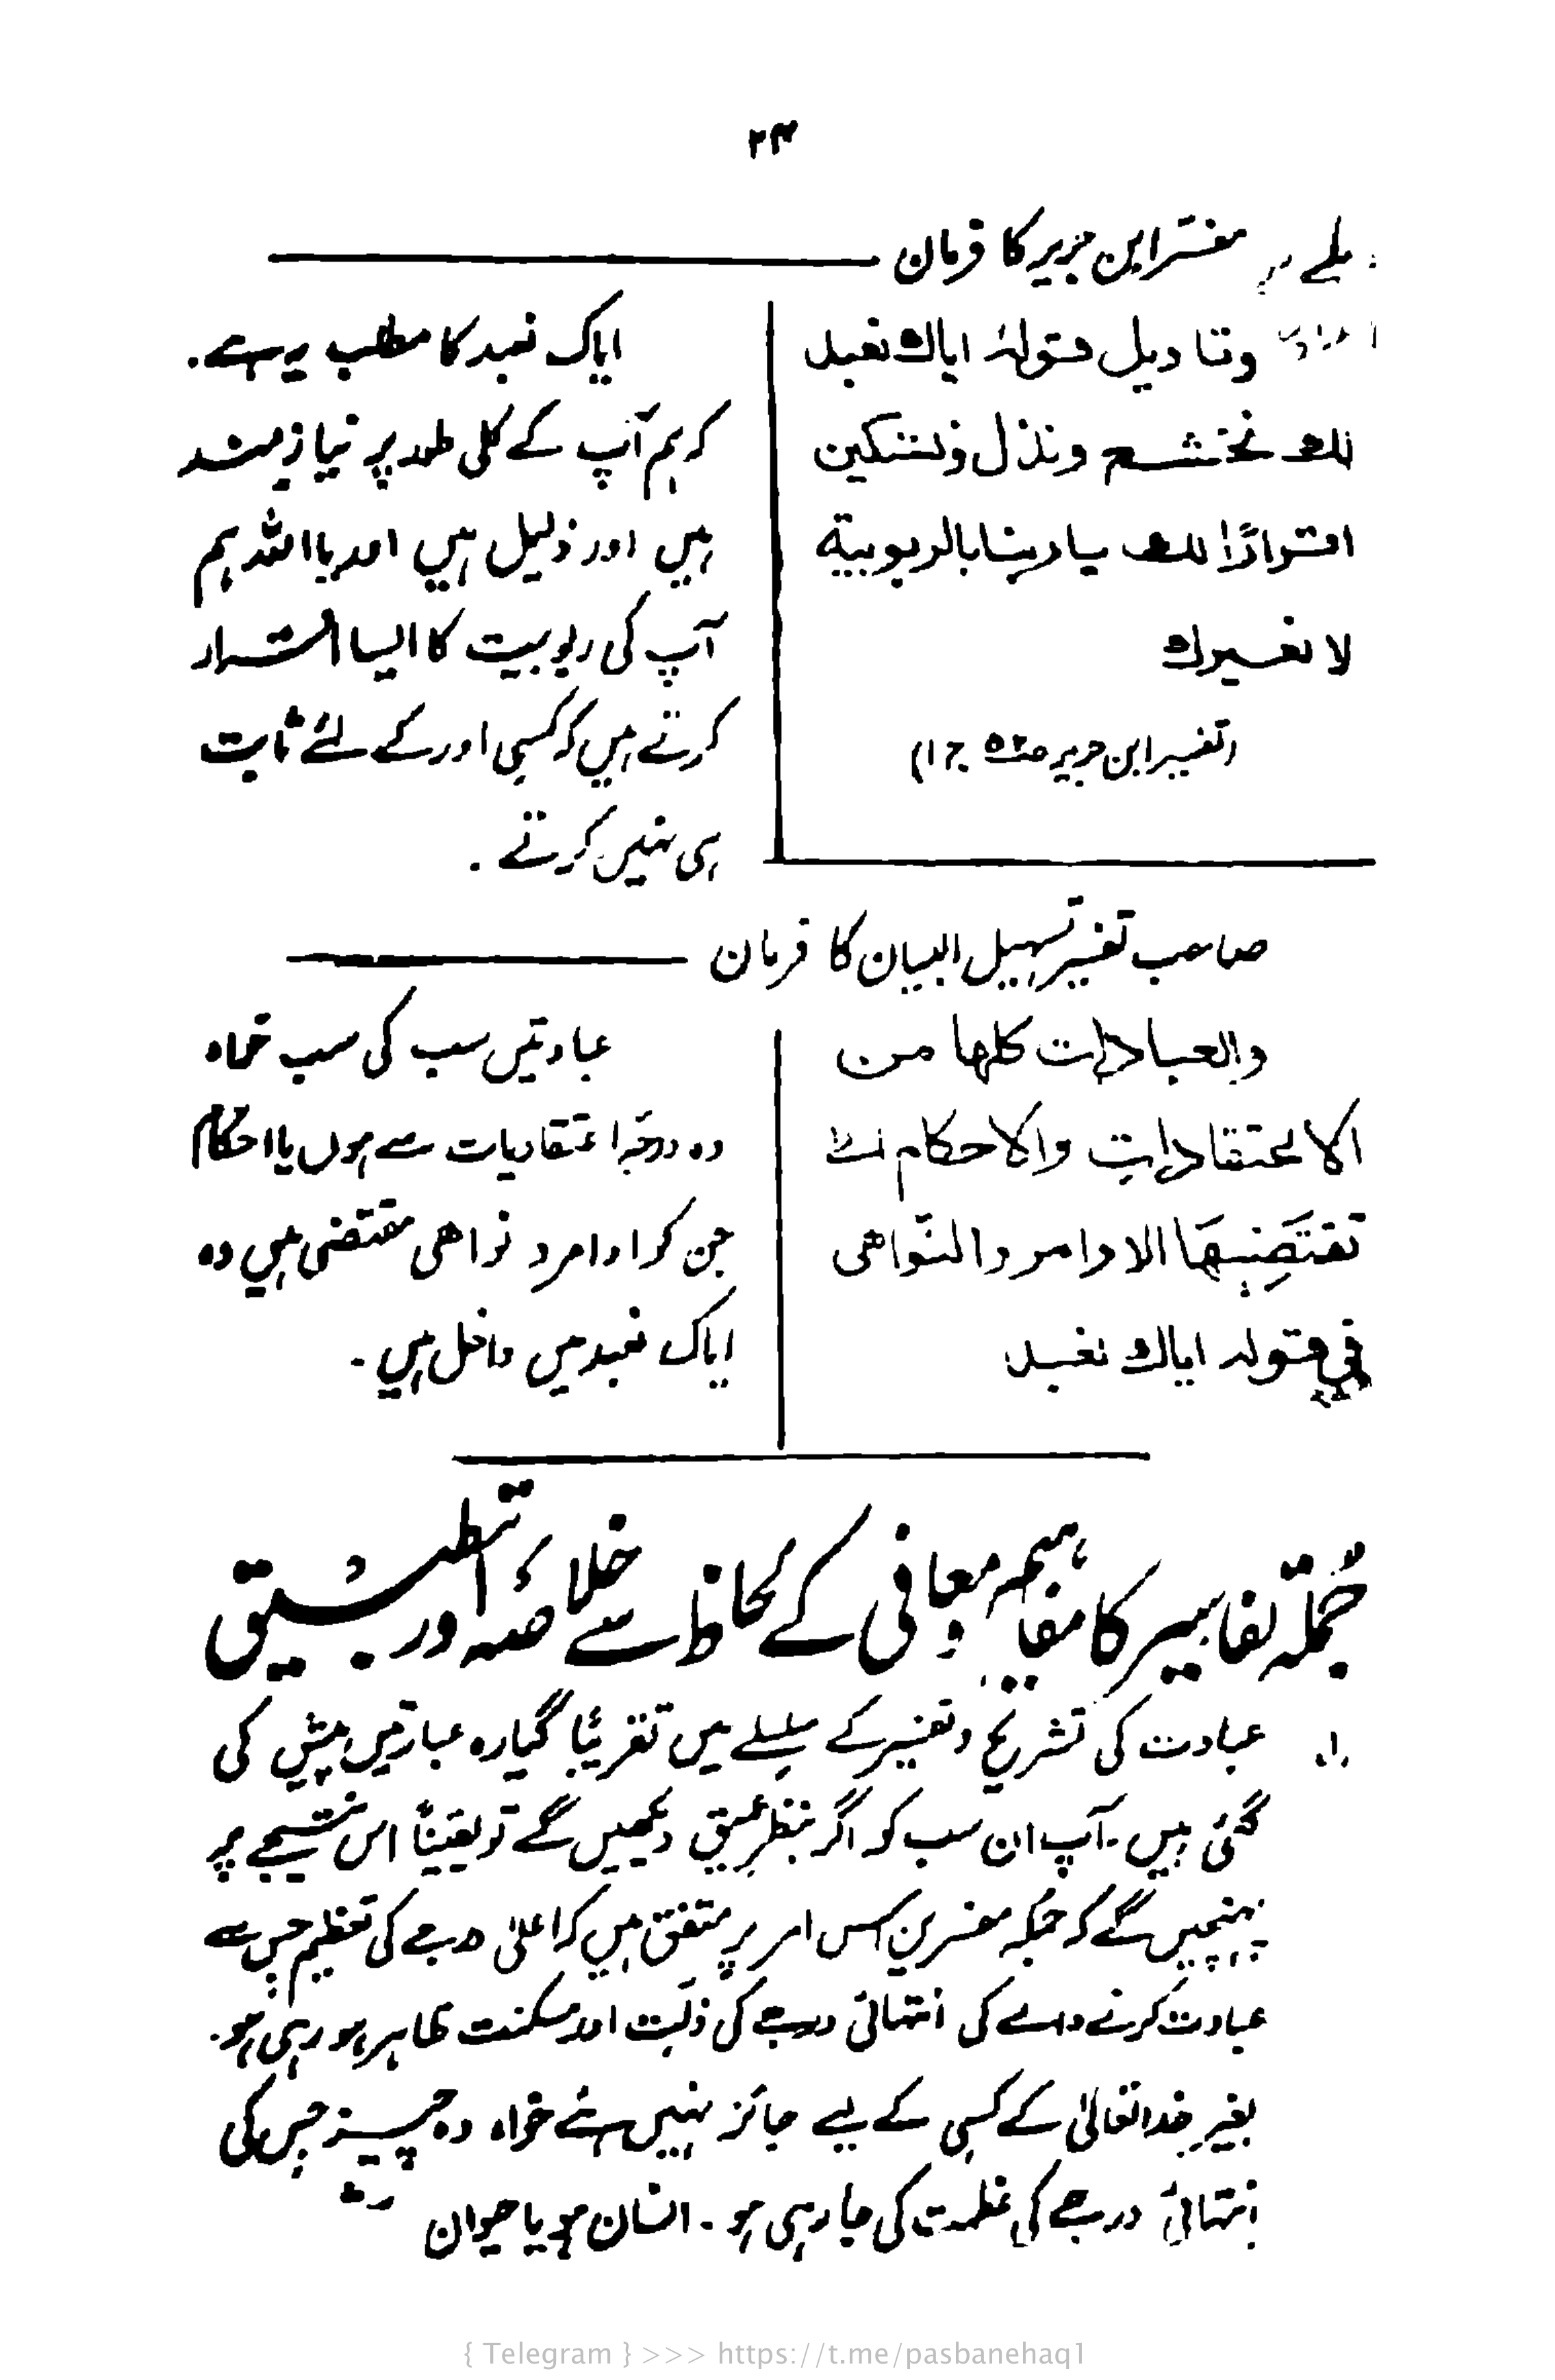 ۲۳
مفسّر ابن جریر کا فرمان
وتاویل قولہٗ ایاك نعبد
لك نخشع ونذل ونستكین
اقرارًا لك یا ربنا بالربوبیة
لا لغیرك
(تفسیر ابن جریر ص۵۲ ج ۱)
ایاک نعبد کا مطلب یہ ہے۔
کہ ہم آپ کے کلی طور پر نیاز مند
ہیں اور ذلیل ہیں اور یا اللہ ہم
آپ کی ربوبیت کا ایسا اقرار
کرتے ہیں کہ کسی اور کے لئے ثابت
ہی نہیں کرتے ۔
صاحب تفسیر تسہیل البیان کا فرمان
والعبادات کلها من
الاعتقادات والاحکام التی
تقتَضِیهَا الاوامر والنّواهی
فی قوله ایاك نعبد
عبادتیں سب کی سب خواہ
وہ درجہٗ اعتقادیات سے ہوں یا احکام
جن کو اوامر و نواھی مقتضی ہیں وہ
ایاک نعبد میں داخل ہیں ۔
جُملہ تفاسیر کا مفاہیم و معانی کے لحاظ سے خلاصہٗ اور تطبیق
(۱) عبادت کی تشریح و تفسیر کے سلسلے میں تقریباً گیارہ عبارتیں پیش کی
گئی ہیں ۔ آپ ان سب کو اگر بنظرِ عمیق دیکھیں گے تو یقیناً اس نتیجے پر
پہنچیں گے کہ جبکہ مفسرین اس امر پر متفق ہیں کہ اعلیٰ درجے کی تعظیم جس سے
عبادت کرنے والے کی انتہائی درجے کی ذلّت اور مسکنت ظاہر ہو رہی ہو۔
بغیر خدا تعالیٰ کے کسی کے لیے جائز نہیں ہے خواہ وہ چیز جس کی
انتہائی درجے کی عظمت کی جا رہی ہو ۔ انسان ہو یا حیوان
{ Telegram } >>> https://t.me/pasbanehaq1